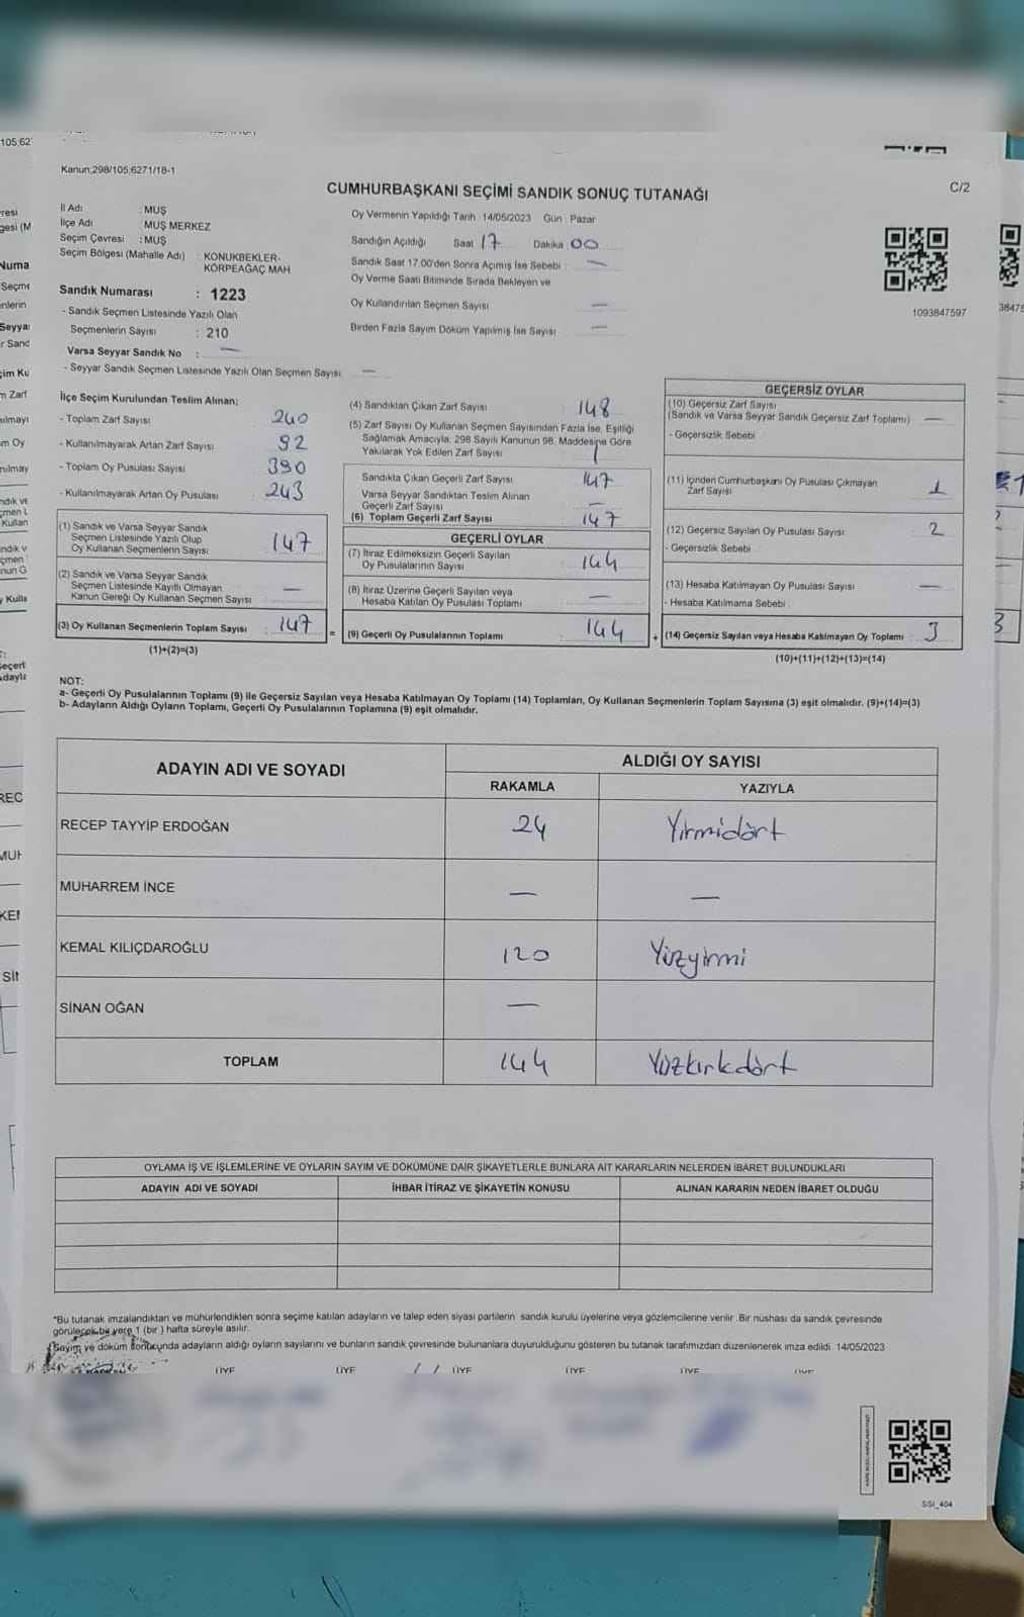 105;62
Kanun;298/105;6271/18-1
CUMHURBAŞKANI SEÇİMİ SANDIK SONUÇ TUTANAĞI
C/2
İl Adı : MUŞ
İlçe Adı : MUŞ MERKEZ
Seçim Çevresi : MUŞ
Seçim Bölgesi (Mahalle Adı) : KONUKBEKLER-
KÖRPEAĞAÇ MAH
Sandık Numarası : 1223
- Sandık Seçmen Listesinde Yazılı Olan
Seçmenlerin Sayısı : 210
Varsa Seyyar Sandık No : —
- Seyyar Sandık Seçmen Listesinde Yazılı Olan Seçmen Sayısı —
Oy Vermenin Yapıldığı Tarih : 14/05/2023 Gün : Pazar
Sandığın Açıldığı Saat 17 Dakika 00
Sandık Saat 17.00'den Sonra Açımış İse Sebebi : —
Oy Verme Saati Bitiminde Sırada Bekleyen ve
Oy Kullandırılan Seçmen Sayısı —
Birden Fazla Sayım Döküm Yapılmış İse Sayısı —
1093847597
İlçe Seçim Kurulundan Teslim Alınan:
- Toplam Zarf Sayısı 240
- Kullanılmayarak Artan Zarf Sayısı 92
- Toplam Oy Pusulası Sayısı 390
- Kullanılmayarak Artan Oy Pusulası 243
(1) Sandık ve Varsa Seyyar Sandık
Seçmen Listesinde Yazılı Olup
Oy Kullanan Seçmenlerin Sayısı 147
(2) Sandık ve Varsa Seyyar Sandık
Seçmen Listesinde Kayıtlı Olmayan
Kanun Gereği Oy Kullanan Seçmen Sayısı —
(3) Oy Kullanan Seçmenlerin Toplam Sayısı 147 =
(1)+(2)=(3)
(4) Sandıktan Çıkan Zarf Sayısı 148
(5) Zarf Sayısı Oy Kullanan Seçmen Sayısından Fazla İse, Eşitliği
Sağlamak Amacıyla, 298 Sayılı Kanunun 98. Maddesine Göre
Yakılarak Yok Edilen Zarf Sayısı 1
Sandıkta Çıkan Geçerli Zarf Sayısı 147
Varsa Seyyar Sandıktan Teslim Alınan
Geçerli Zarf Sayısı —
(6) Toplam Geçerli Zarf Sayısı 147
GEÇERLİ OYLAR
(7) İtiraz Edilmeksizin Geçerli Sayılan
Oy Pusulalarının Sayısı 144
(8) İtiraz Üzerine Geçerli Sayılan veya
Hesaba Katılan Oy Pusulası Toplamı —
(9) Geçerli Oy Pusulalarının Toplamı 144 +
GEÇERSİZ OYLAR
(10) Geçersiz Zarf Sayısı
(Sandık ve Varsa Seyyar Sandık Geçersiz Zarf Toplamı) —
- Geçersizlik Sebebi
(11) İçinden Cumhurbaşkanı Oy Pusulası Çıkmayan
Zarf Sayısı 1
(12) Geçersiz Sayılan Oy Pusulası Sayısı 2
- Geçersizlik Sebebi
(13) Hesaba Katılmayan Oy Pusulası Sayısı —
- Hesaba Katılmama Sebebi
(14) Geçersiz Sayılan veya Hesaba Katılmayan Oy Toplamı 3
(10)+(11)+(12)+(13)=(14)
NOT:
a- Geçerli Oy Pusulalarının Toplamı (9) ile Geçersiz Sayılan veya Hesaba Katılmayan Oy Toplamı (14) Toplamları, Oy Kullanan Seçmenlerin Toplam Sayısına (3) eşit olmalıdır. (9)+(14)=(3)
b- Adayların Aldığı Oyların Toplamı, Geçerli Oy Pusulalarının Toplamına (9) eşit olmalıdır.
ADAYIN ADI VE SOYADI ALDIĞI OY SAYISI
RAKAMLA YAZIYLA
RECEP TAYYİP ERDOĞAN 24 Yirmidört
MUHARREM İNCE — —
KEMAL KILIÇDAROĞLU 120 Yüzyirmi
SİNAN OĞAN —
TOPLAM 144 Yüzkırkdört
OYLAMA İŞ VE İŞLEMLERİNE VE OYLARIN SAYIM VE DÖKÜMÜNE DAİR ŞİKAYETLERLE BUNLARA AİT KARARLARIN NELERDEN İBARET BULUNDUKLARI
ADAYIN ADI VE SOYADI İHBAR İTİRAZ VE ŞİKAYETİN KONUSU ALINAN KARARIN NEDEN İBARET OLDUĞU
*Bu tutanak imzalandıktan ve mühürlendikten sonra seçime katılan adayların ve talep eden siyasi partilerin sandık kurulu üyelerine veya gözlemcilerine verilir. Bir nüshası da sandık çevresinde
görülecek bir yere 1 (bir) hafta süreyle asılır.
Sayım ve döküm sonucunda adayların aldığı oyların sayılarını ve bunların sandık çevresinde bulunanlara duyurulduğunu gösteren bu tutanak tarafımızdan düzenlenerek imza edildi. 14/05/2023
ÜYE ÜYE ÜYE ÜYE ÜYE
SSI_404